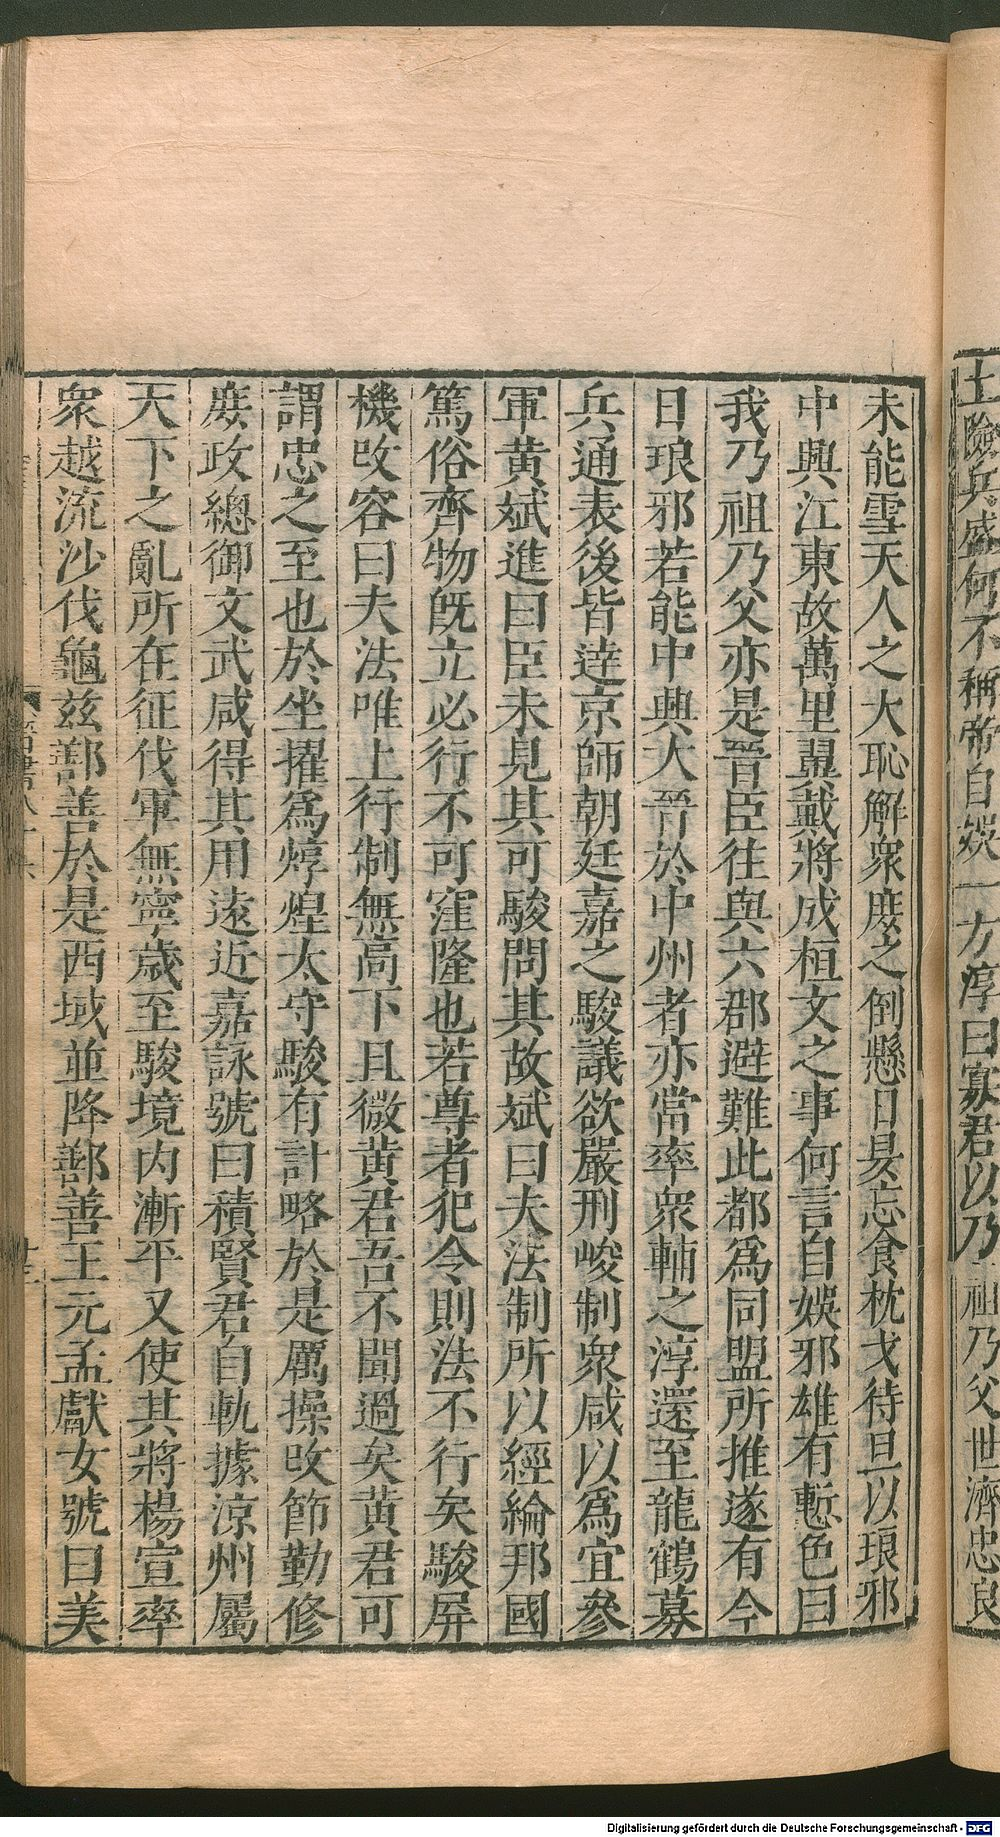 土險兵盛何不稱帝自娛一方淳曰寡君以乃祖乃父世濟忠良
未能雪天人之大恥解衆庶之倒懸日昃忘食枕戈待旦以琅邪
中興江東故萬里翼戴將成桓文之事何言自娛邪雄有慙色曰
我乃祖乃父亦是晉臣往與六郡避難此都爲同盟所推遂有今
日琅邪若能中興大晉於中州者亦當率衆輔之淳還至龍鶴募
兵通表後皆達京師朝廷嘉之駿議欲嚴刑峻制衆咸以爲宜參
軍黄斌進曰臣未見其可駿問其故斌曰夫法制所以經綸邦國
篤俗齊物旣立必行不可窪隆也若尊者犯令則法不行矣駿屏
機改容曰夫法唯上行制無高下且微黄君吾不聞過矣黄君可
謂忠之至也於坐擢爲焞煌太守駿有計略於是厲操改節勤修
庶政總御文武咸得其用遠近嘉詠號曰積賢君自軌據涼州屬
天下之亂所在征伐軍無寧歲至駿境内漸平又使其將楊宣率
衆越流沙伐龜兹鄯善於是西域並降鄯善王元孟獻女號曰美
Digitalisierung gefördert durch die Deutsche Forschungsgemeinschaft - DFG